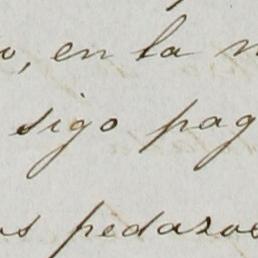 , en la
sigo pag
pedazos